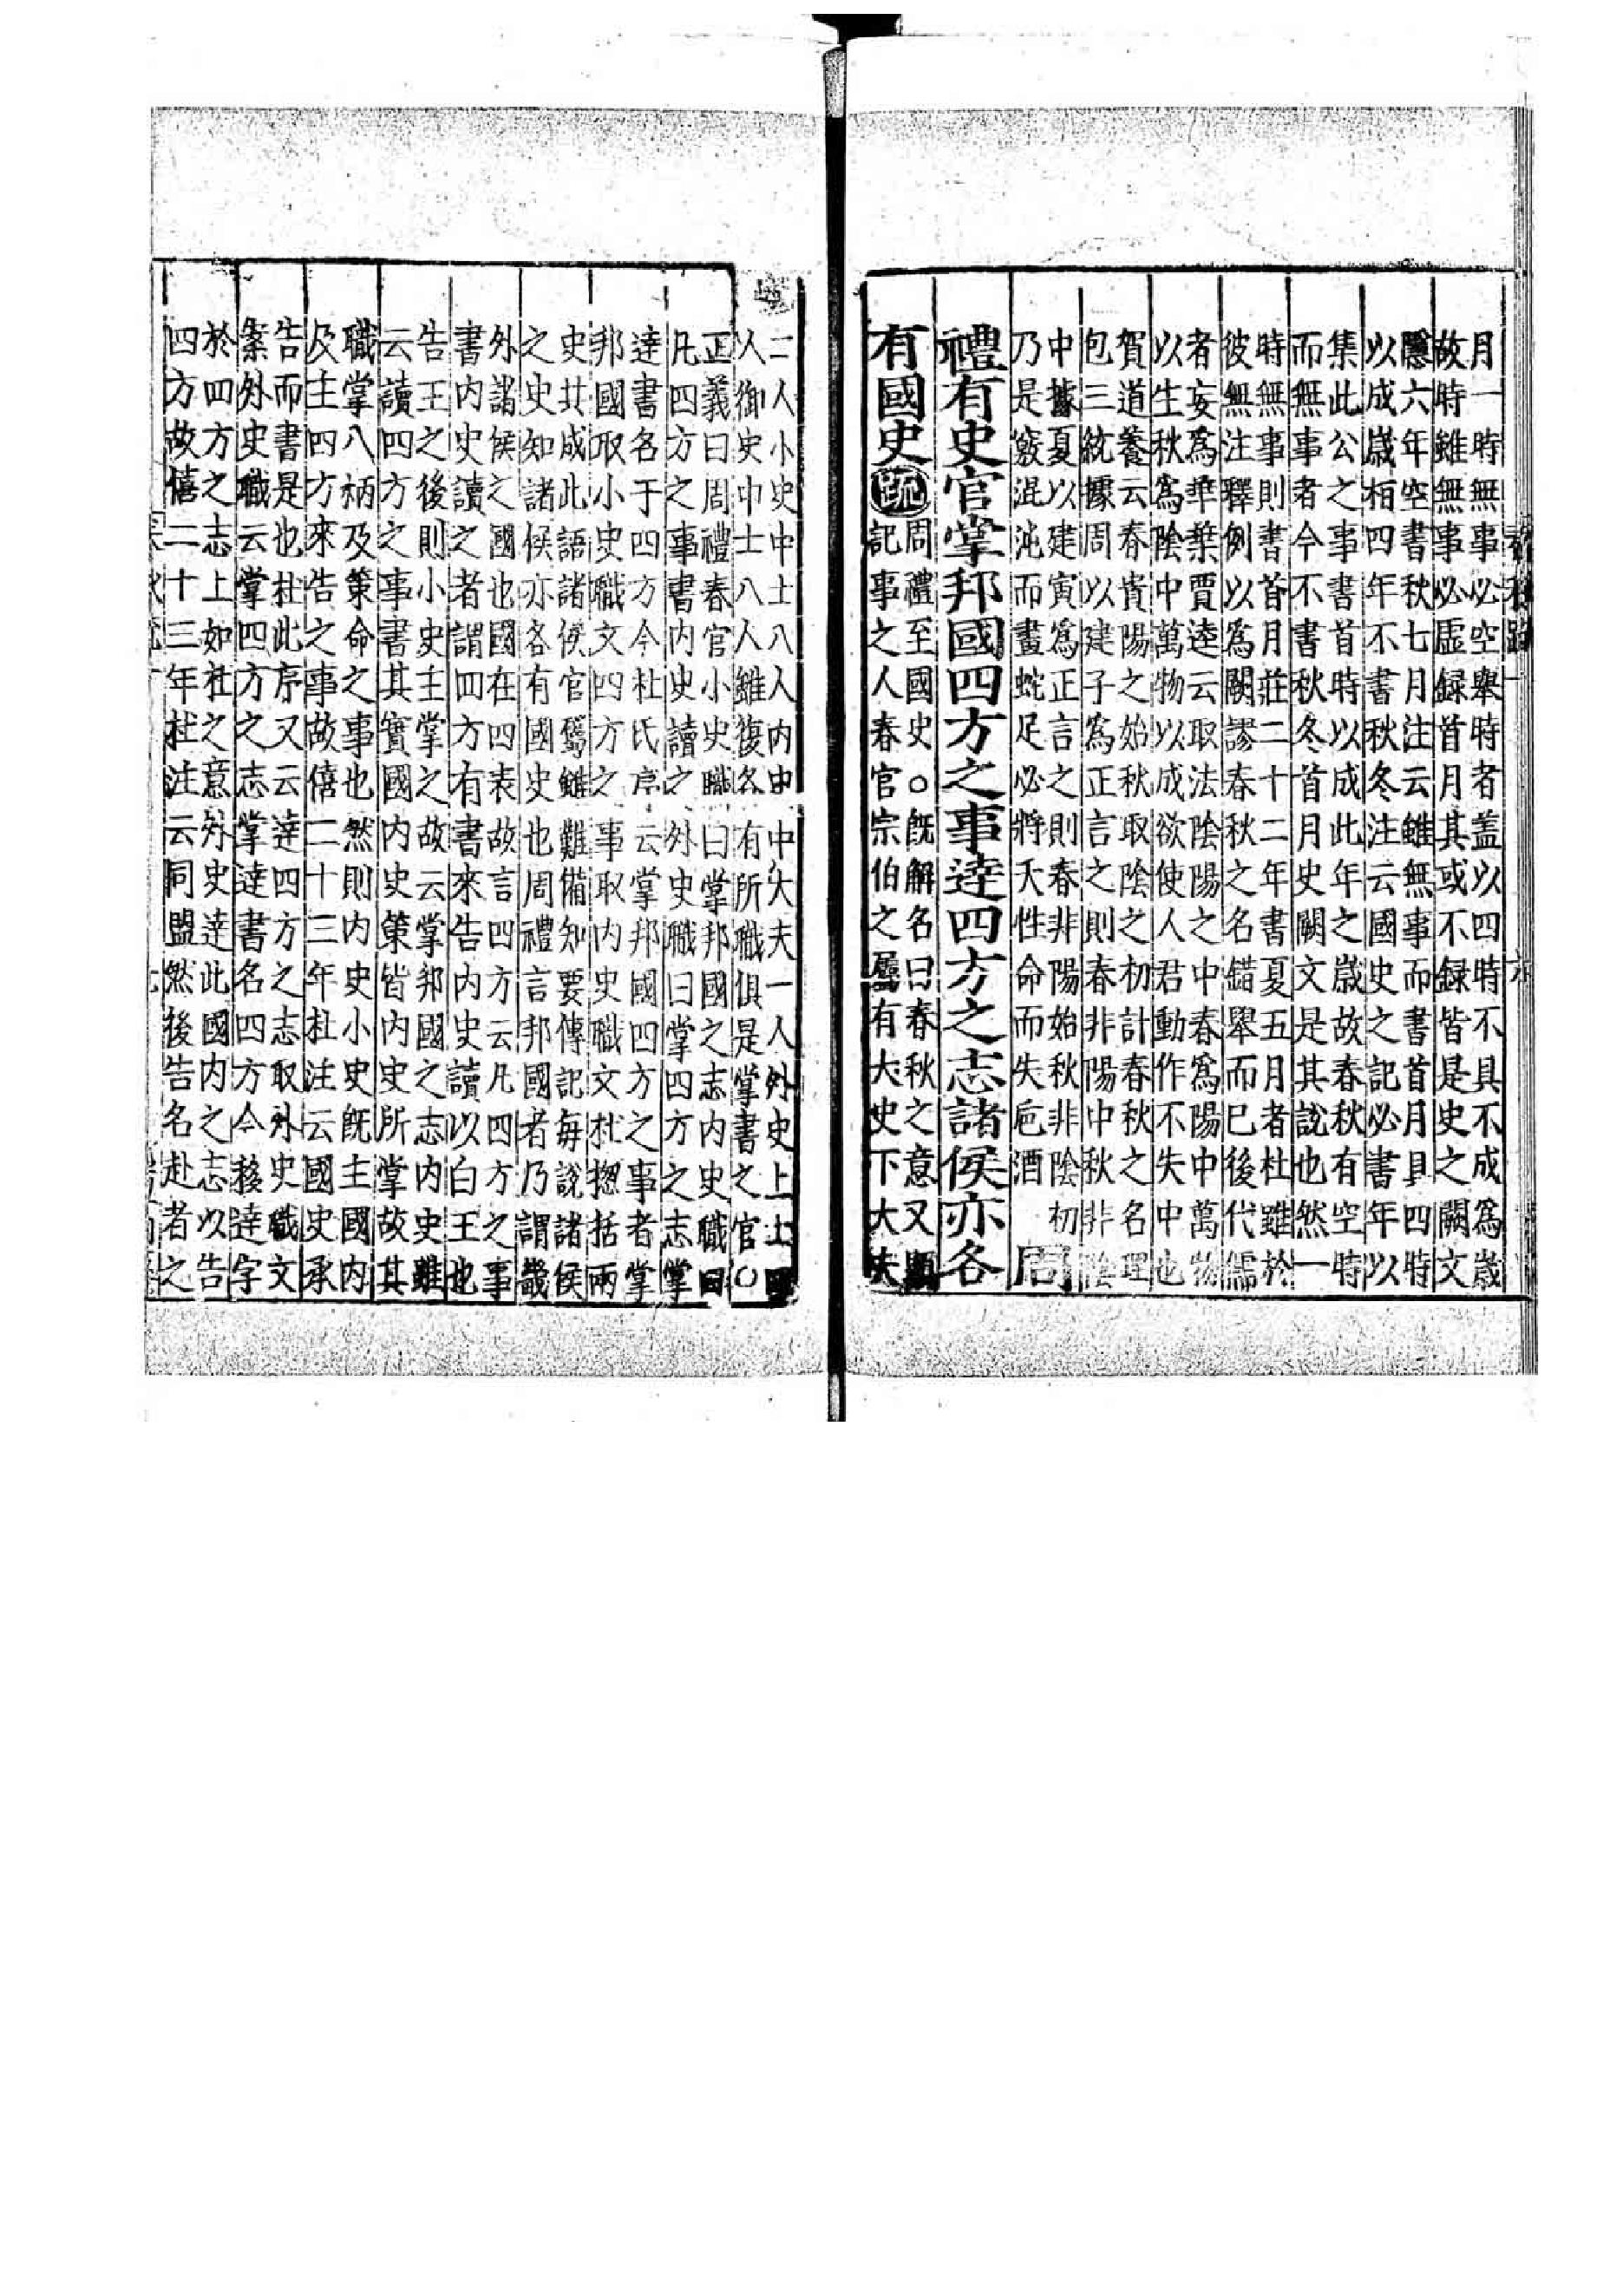 月一時無事必空舉時者蓋以四時不具不成爲歲
故時雖無事必虛録首月其或不録皆是史之闕文
隱六年空書秋七月注云雖無事而書首月具四時
以成歲桓四年不書秋冬注云國史之記必書年以
集此公之事書首時以成此年之歲故春秋有空時
而無事者今不書秋冬首月史闕文是其說也然一
時無事則書首月莊二十二年書夏五月者杜雖於
彼無注釋例以爲闕謬春秋之名錯舉而已後代儒
者妄爲華葉賈逵云取法陰陽之中春爲陽中萬物
以生秋爲陰中萬物以成欲使人君動作不失中也
賀道養云春貴陽之始秋取陰之初計春秋之名理
包三統據周以建子爲正言之則春非陽中秋非陰
中據夏以建寅爲正言之則春非陽始秋非陰初
乃是竅混沌而畫蛇足必將夭性命而失巵酒 周
禮有史官掌邦國四方之事逹四方之志諸侯亦各
有國史
疏
周禮至國史○旣解名曰春秋之意又顯
記事之人春官宗伯之屬有大史下大夫
二人小史中士八人內史中大夫一人外史上士四
人御史中士八人雖復各有所職俱是掌書之官○
正義曰周禮春官小史職曰掌邦國之志內史職曰
凡四方之事書內史讀之外史職曰掌四方之志掌
逹書名于四方今杜氏序云掌邦國四方之事者掌
邦國取小史職文四方之事取內史職文杜揔括兩
史共成此語諸侯官屬雖難備知要傳記每說諸侯
之史知諸侯亦各有國史也周禮言邦國者乃謂畿
外諸侯之國也國在四表故言四方云凡四方之事
書內史讀之者謂四方有書來告內史讀以白王也
告王之後則小史主掌之故云掌邦國之志內史雖
云讀四方之事書其實國內史策皆內史所掌故其
職掌八柄及策命之事也然則內史小史旣主國內
及主四方來告之事故僖二十三年杜注云國史承
告而書是也杜此序又云逹四方之志取外史職文
案外史職云掌四方之志掌逹書名四方今移逹字
於四方之志上如杜之意外史逹此國內之志以告
四方故僖二十三年杜注云同盟然後告名赴者之